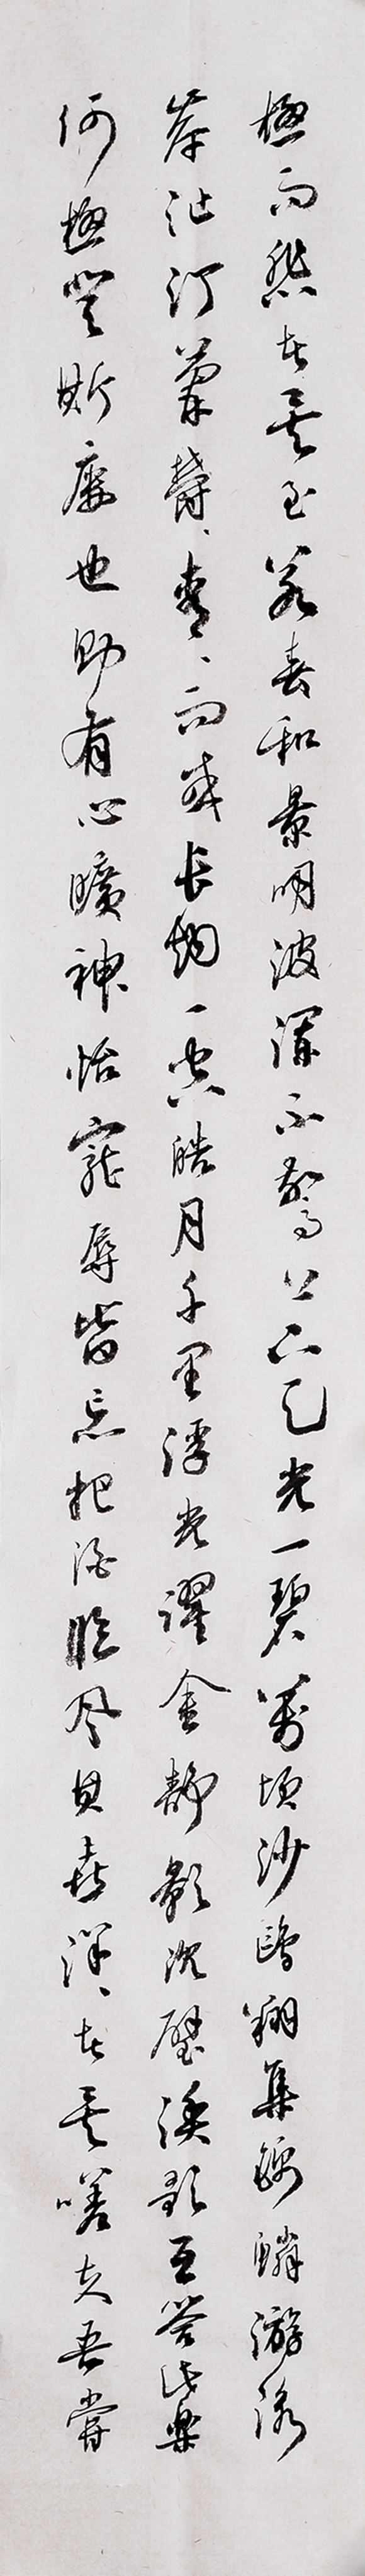 極而悲者矣至若春和景明波瀾不驚上下天光一碧萬頃沙鷗翔集錦鱗游泳
岸芷汀蘭鬱、青、而或長烟一空皓月千里浮光躍金靜影沉璧漁歌互答此樂
何極登斯廔也則有心曠神怡寵辱皆忘把酒臨風其喜洋、者矣嗟夫吾嘗